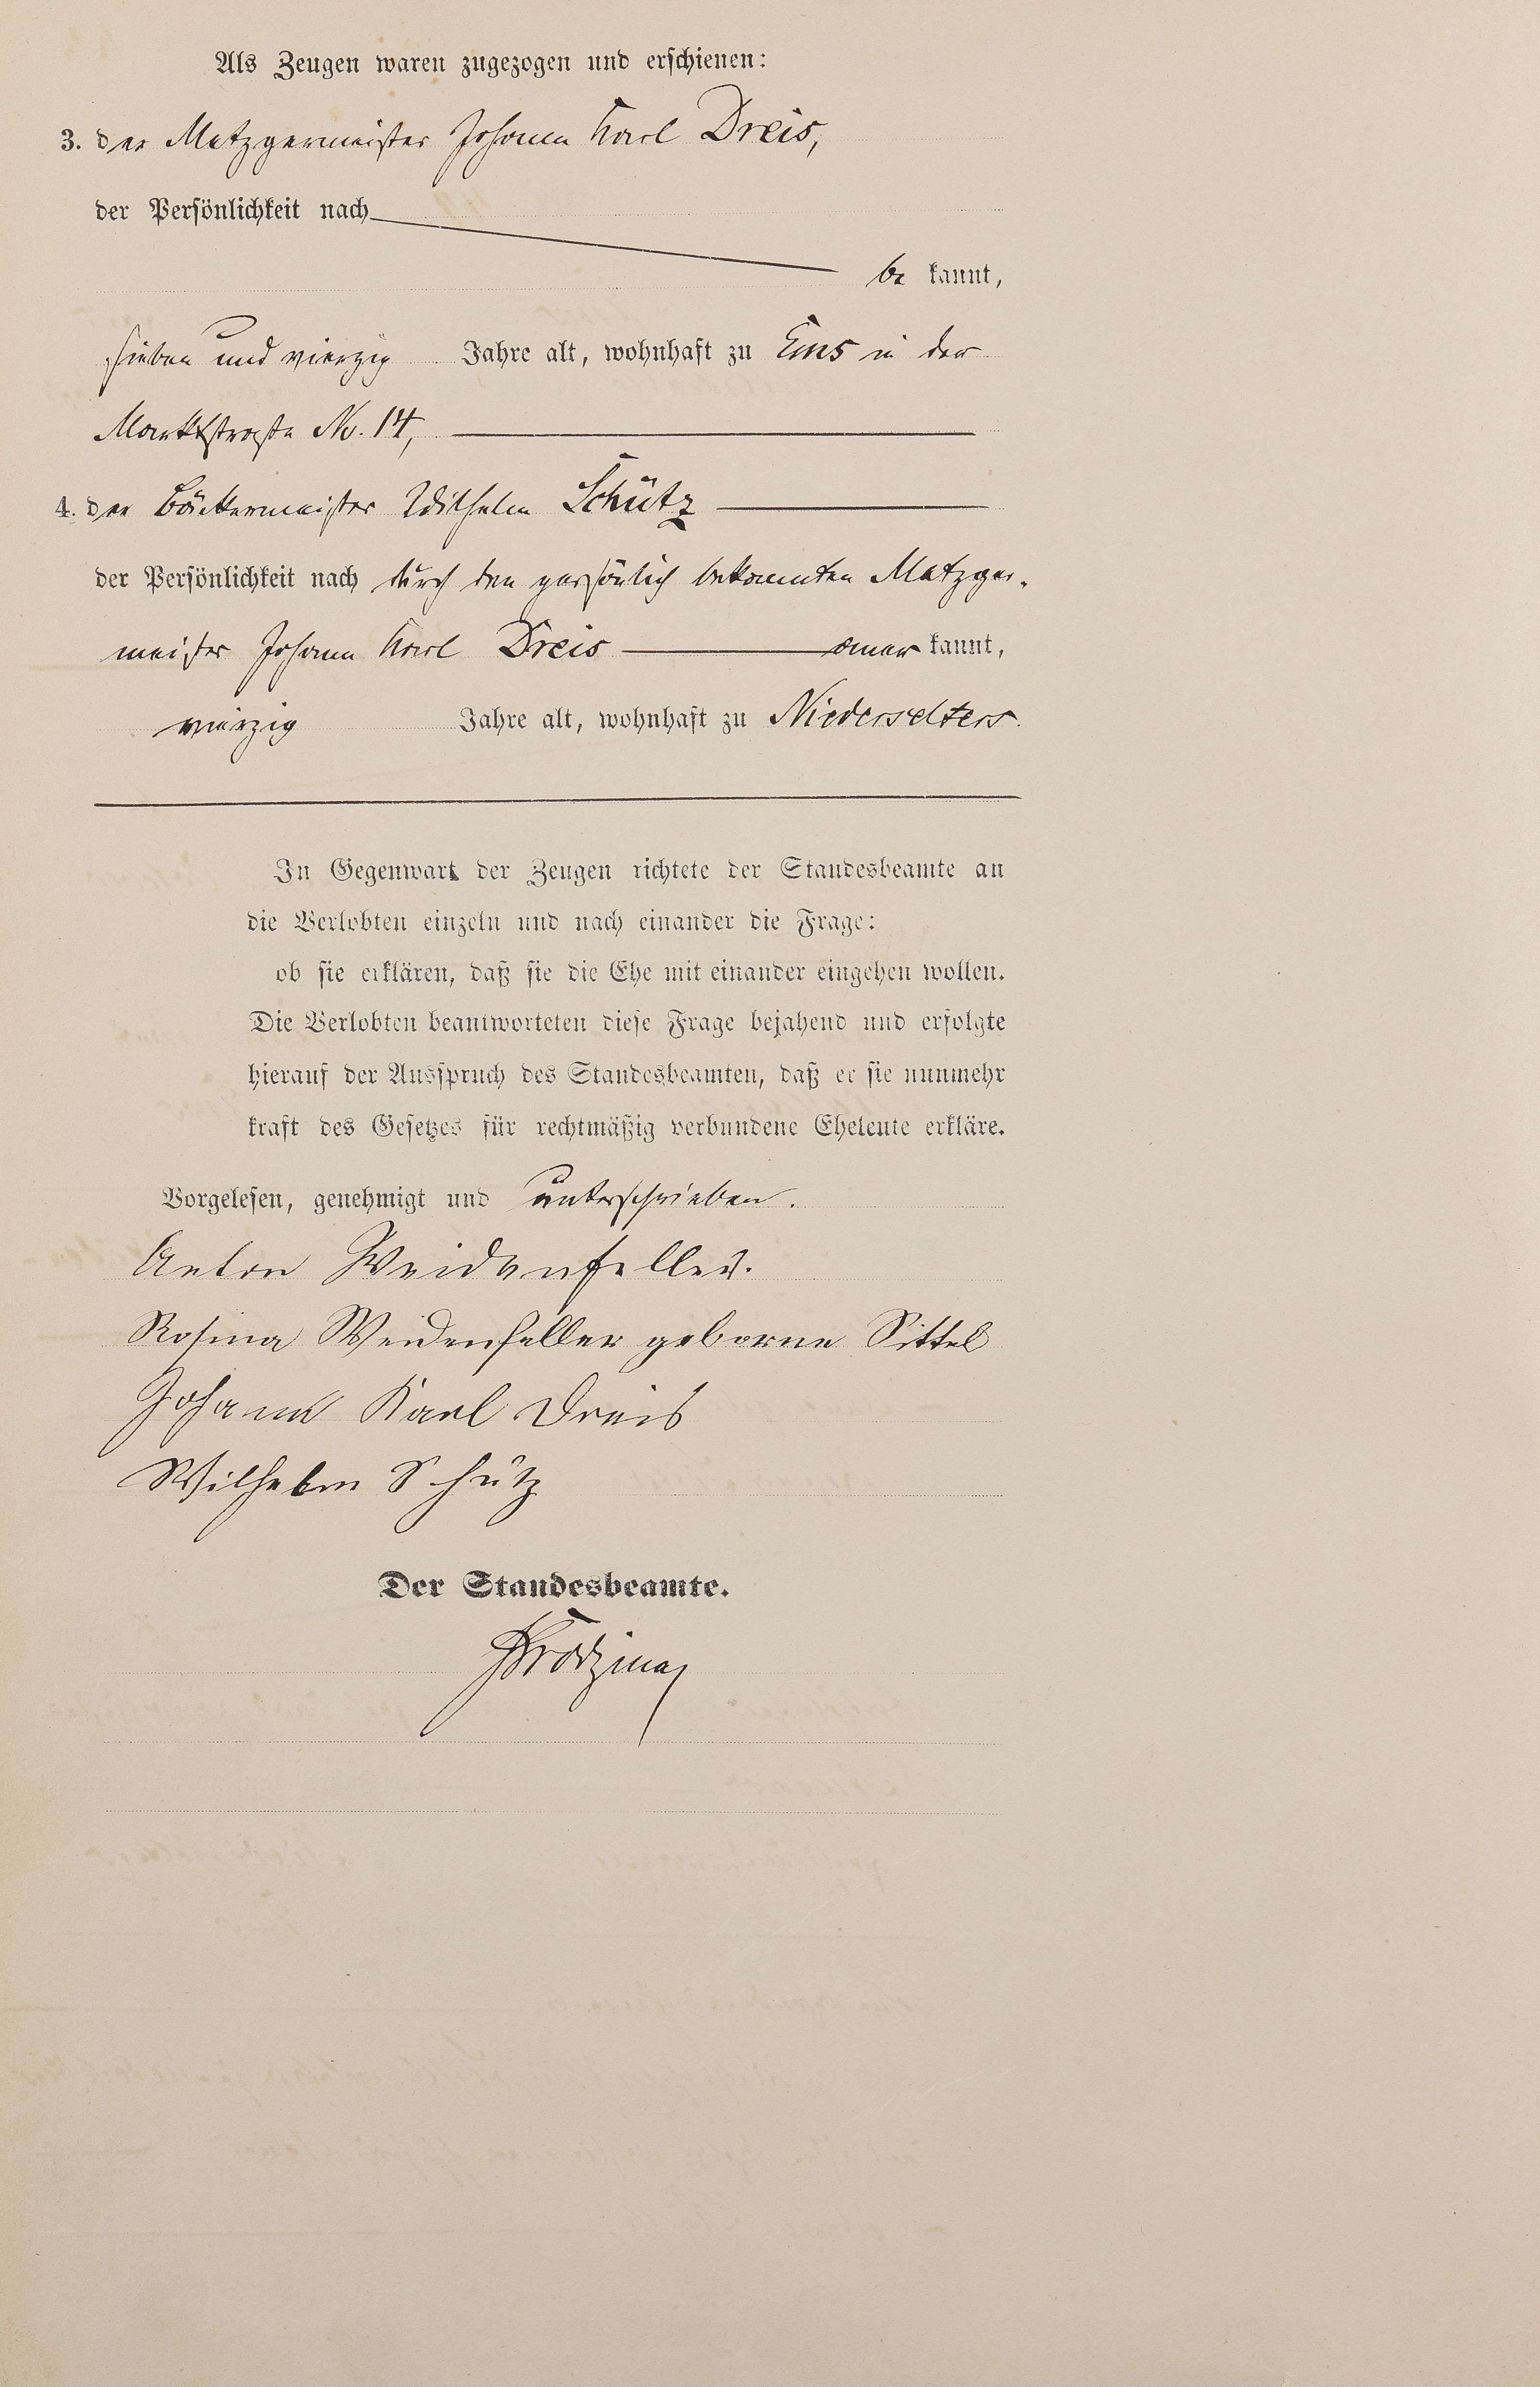 Als Zeugen waren zugezogen und erschienen:
3. der Metzgermeister Johann Karl Dreis,
der Persönlichkeit nach
be kannt,
sieben und vierzig Jahre alt, wohnhaft zu Ems in der
Marktstraße No. 14,
4. der Bäckermeister Wilhelm Schütz
der Persönlichkeit nach durch den persönlich bekannten Metzger-
meister Johann Karl Dreis aner kannt,
vierzig Jahre alt, wohnhaft zu Niederselters.
In Gegenwart der Zeugen richtete der Standesbeamte an
die Verlobten einzeln und nach einander die Frage:
ob sie erklären, daß sie die Ehe mit einander eingehen wollen.
Die Verlobten beantworteten diese Frage bejahend und erfolgte
hierauf der Ausspruch des Standesbeamten, daß er sie nunmehr
kraft des Gesetzes für rechtmäßig verbundene Eheleute erkläre.
Vorgelesen, genehmigt und unterschrieben.
Anton Weidenfeller.
Rosina Weidenfeller geborne Sittel
Johann Karl Dreis
Wilhelm Schütz
Der Standesbeamte.